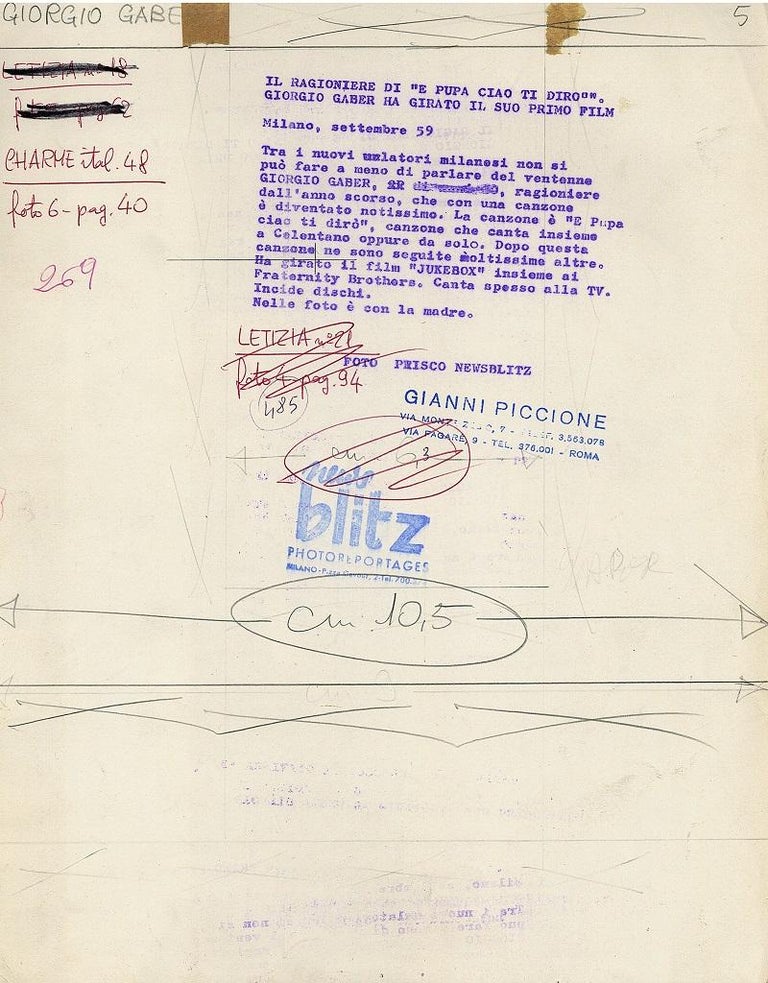 GIORGIO GABE
5
LETIZIA no 18
CHARME ital. 48
foto 6 - pag. 40
269
IL RAGIONIERE DI "E PUPA CIAO TI DIRO"".
GIORGIO GABER HA GIRATO IL SUO PRIMO FILM
Milano, settembre 59
Tra i nuovi urlatori milanesi non si
può fare a meno di parlare del ventenne
GIORGIO GABER, ragioniere
dall'anno scorso, che con una canzone
è diventato notissimo. La canzone è "E Pupa
ciao ti dirò", canzone che canta insieme
a Celentano oppure da solo. Dopo questa
canzone ne sono seguite moltissime altre.
Ha girato il film "JUKEBOX" insieme ai
Fraternity Brothers. Canta spesso alla TV.
Incide dischi.
Nelle foto è con la madre.
LETIZIA no 21
foto 4 - pag. 94
485
FOTO PRISCO NEWSBLITZ
GIANNI PICCIONE
VIA 7 - 3.563.078
VIA PAGARE, 9 - TEL. 376.001 - ROMA
cm 6,3
news
blitz
PHOTOREPORTAGES
MILANO - P.zza Cavour, 2 - Tel. 700.
GABER
cm 10,5